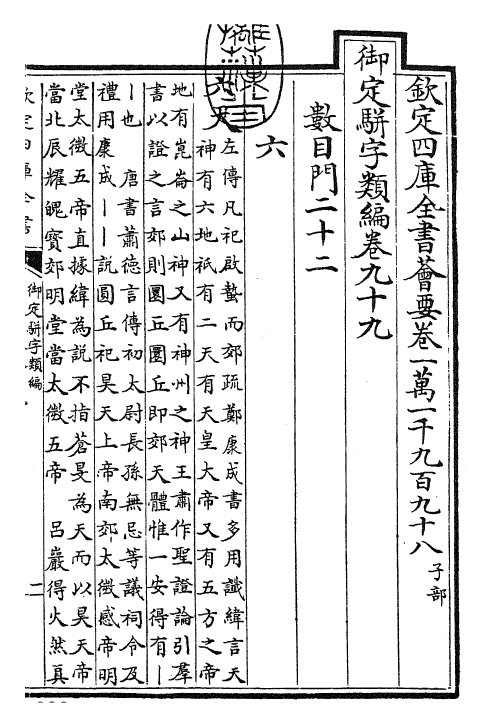 欽定四庫全書薈要卷一萬一千九百九十八 子部
御定駢字類編卷九十九
數目門二十二
六
六天
左傳凡祀啟蟄而郊疏鄭康成書多用讖緯言天
神有六地祇有二天有天皇大帝又有五方之帝
地有崑崙之山神又有神州之神王肅作聖證論引羣
書以證之言郊則圜丘圜丘即郊天體惟一安得有丨
丨也 唐書蕭德言傳初太尉長孫無忌等議祠令及
禮用康成丨丨說圓丘祀昊天上帝南郊太微感帝明
堂太微五帝直據緯為說不指蒼旻為天而以昊天帝
當北辰耀魄寶郊明堂當太微五帝 呂巖得火然真
欽定四庫全書
御定駢字類編